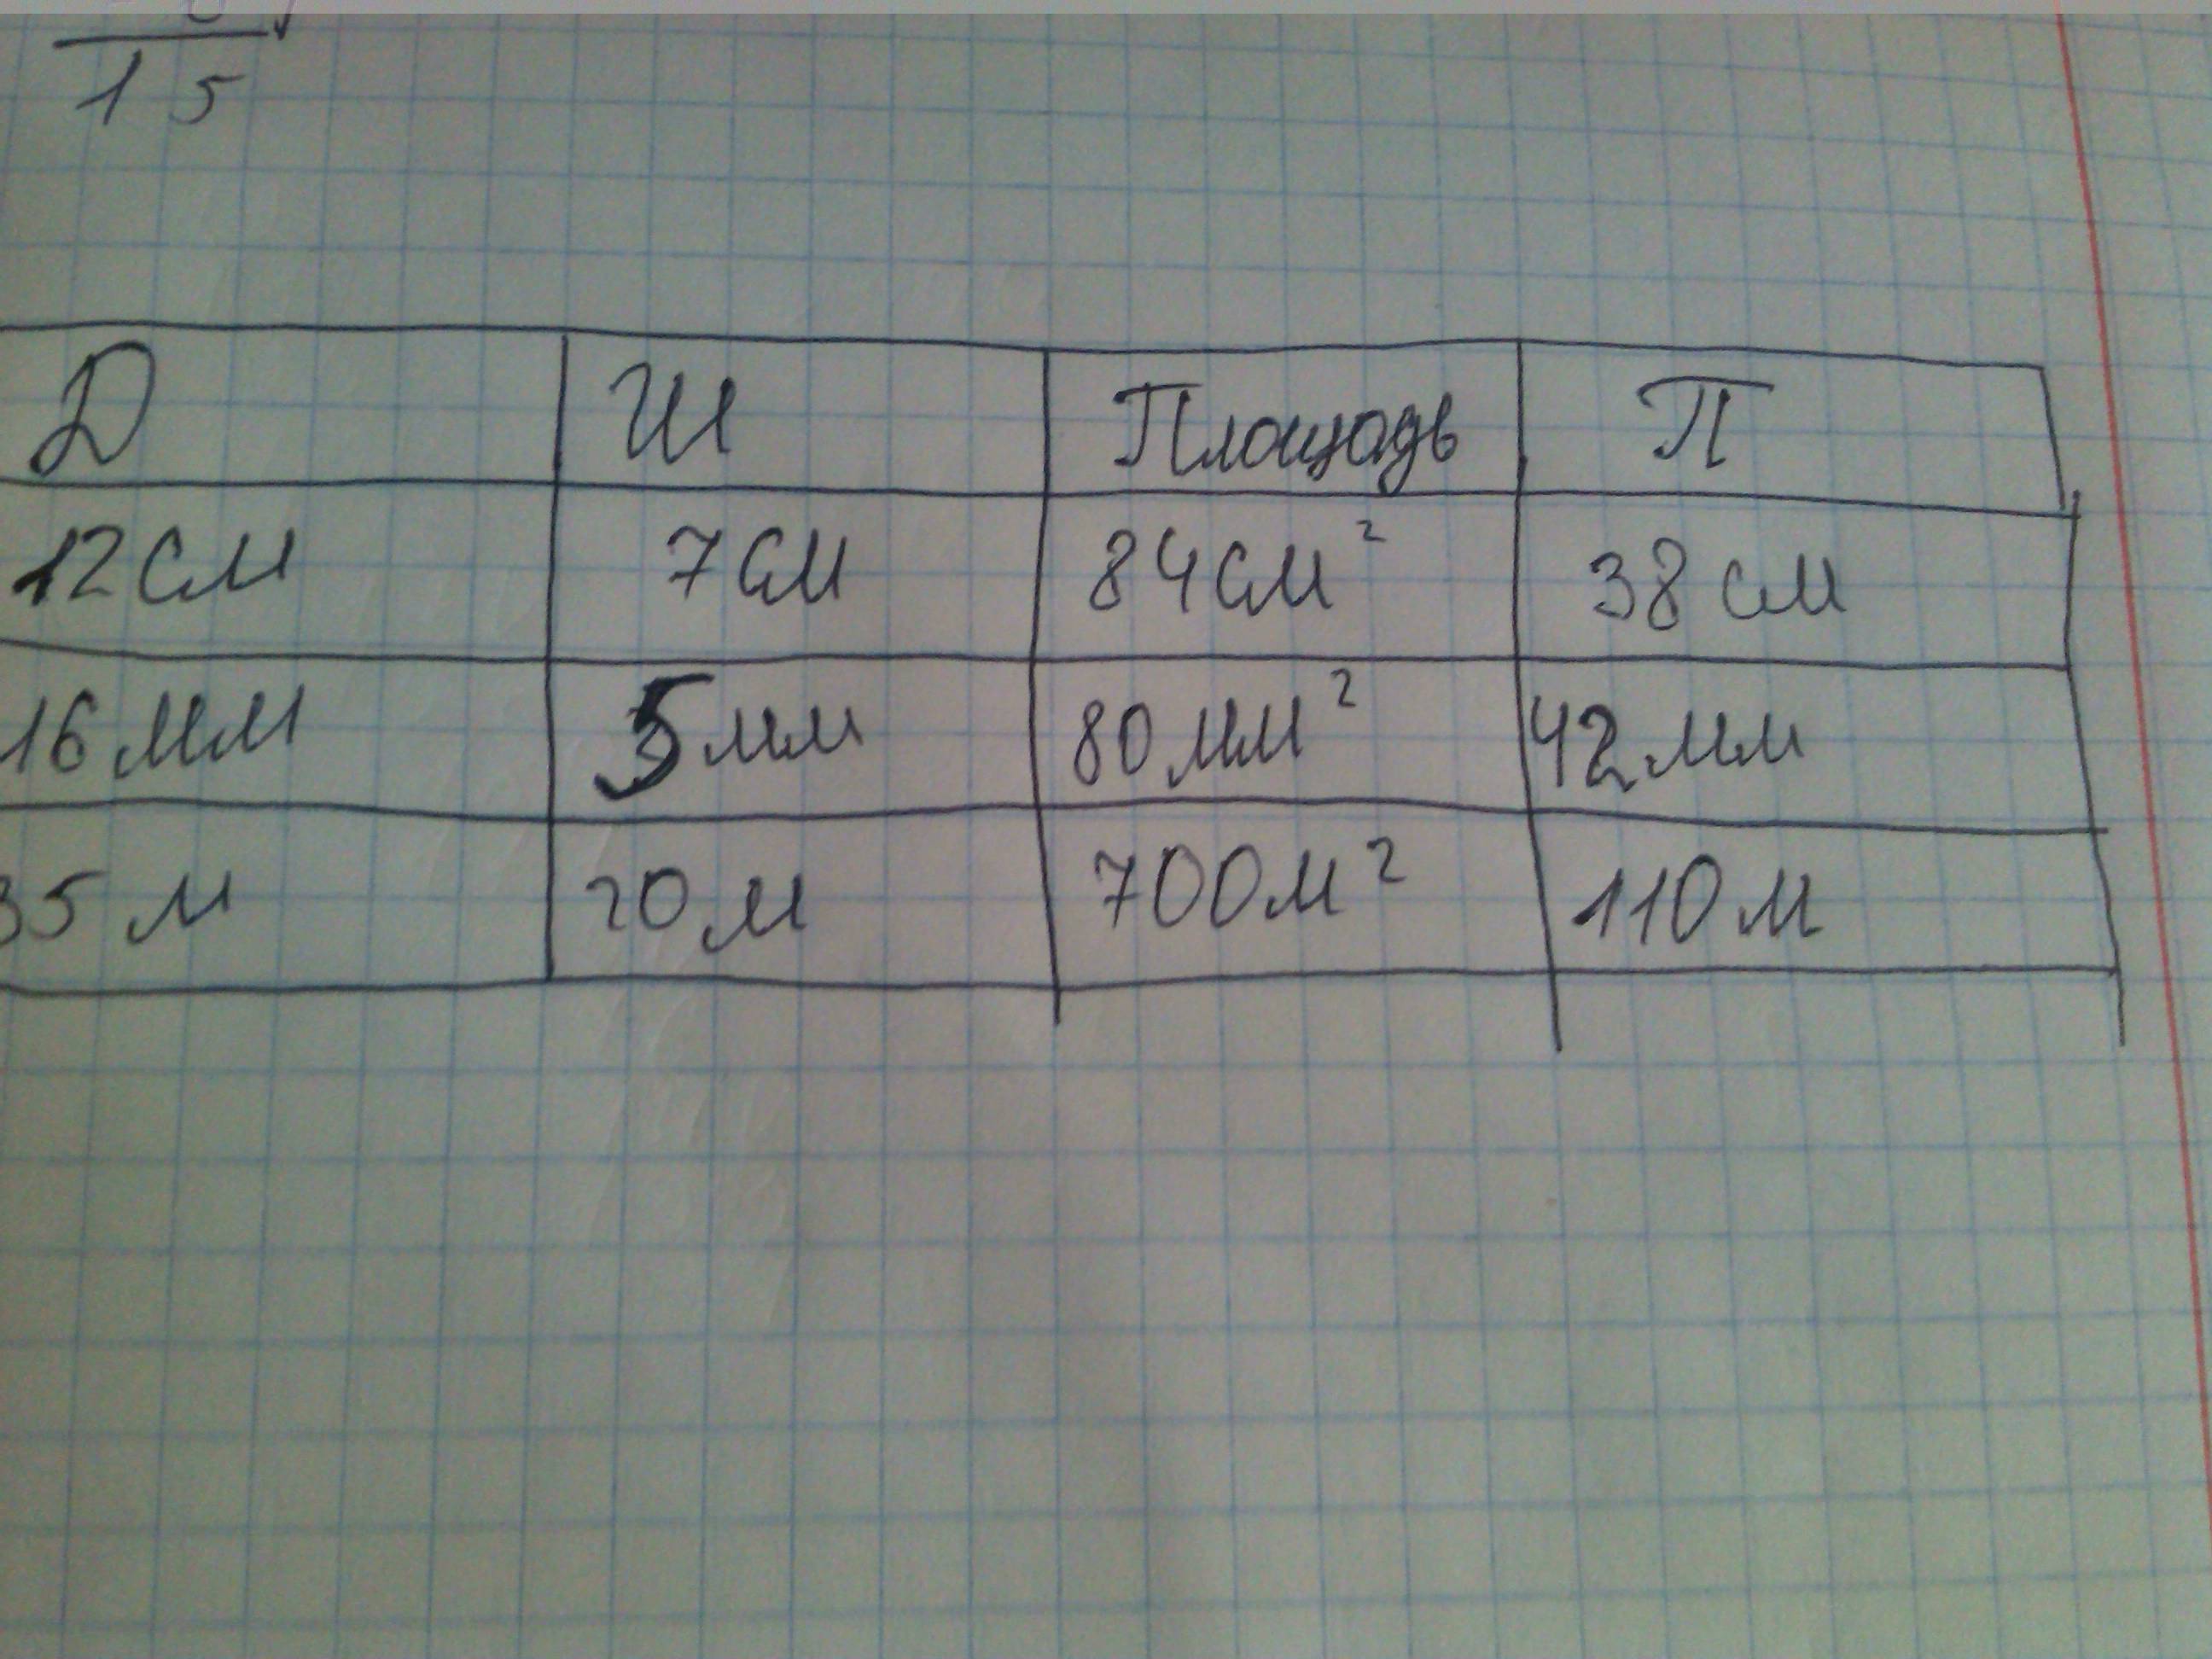 15
Д Ш Площадь П
12 см 7 см 84 см² 38 см
16 мм 5 мм 80 мм² 42 мм
35 м 20 м 700 м² 110 м